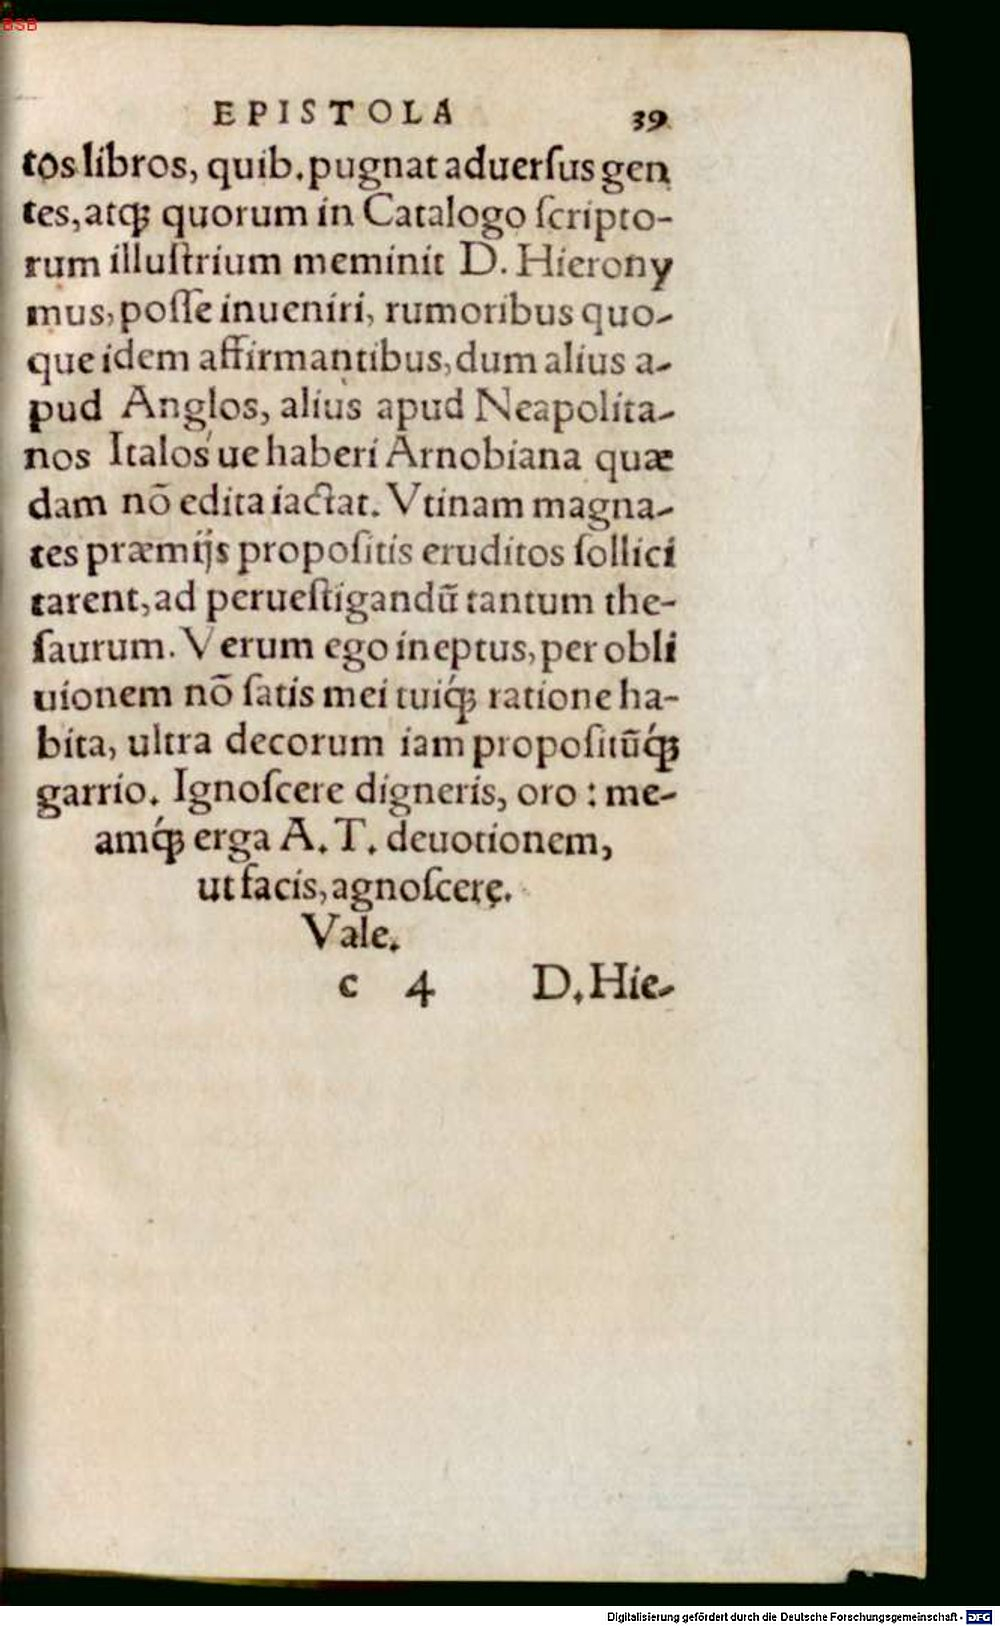 BSB
EPISTOLA 39
tos libros, quib. pugnat aduerſus gen
tes, atq́ꝫ quorum in Catalogo ſcripto-
rum illuſtrium meminit D. Hierony
mus, poſſe inueniri, rumoribus quo-
que idem affirmantibus, dum alius a-
pud Anglos, alius apud Neapolita-
nos Italos'ue haberi Arnobiana quæ
dam nō edita iactat. Vtinam magna-
tes præmijs propoſitis eruditos ſollici
tarent, ad perueſtigandū tantum the-
ſaurum. Verum ego ineptus, per obli
uionem nō ſatis mei tuiq́ꝫ ratione ha-
bita, ultra decorum iam propoſitūq́ꝫ
garrio. Ignoſcere digneris, oro : me-
amq́ꝫ erga A. T. deuotionem,
ut facis, agnoſcere.
Vale.
c 4 D. Hie-
Digitalisierung gefördert durch die Deutsche Forschungsgemeinschaft - DFG